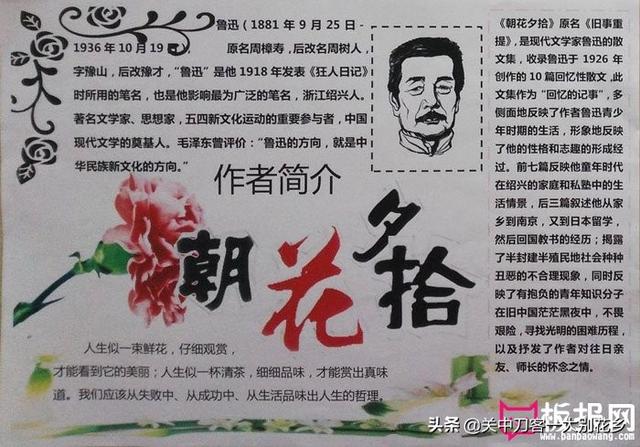 鲁迅（1881 年 9 月 25 日 -
1936 年 10 月 19 日
原名周樟寿，后改名周树人，
字豫山，后改豫才，“鲁迅”是他 1918 年发表《狂人日记》
时所用的笔名，也是他影响最为广泛的笔名，浙江绍兴人。
著名文学家、思想家，五四新文化运动的重要参与者，中国
现代文学的奠基人。毛泽东曾评价：“鲁迅的方向，就是中
华民族新文化的方向。”
作者简介
朝花夕拾
人生似一束鲜花，仔细观赏，
才能看到它的美丽；人生似一杯清茶，细细品味，才能赏出真味
道。我们应该从失败中、从成功中、从生活品味出人生的哲理。
《朝花夕拾》原名《旧事重
提》，是现代文学家鲁迅的散
文集，收录鲁迅于 1926 年
创作的 10 篇回忆性散文，此
文集作为“回忆的记事”，多
侧面地反映了作者鲁迅青少
年时期的生活，形象地反映
了他的性格和志趣的形成经
过。前七篇反映他童年时代
在绍兴的家庭和私塾中的生
活情景，后三篇叙述他从家
乡到南京，又到日本留学，
然后回国教书的经历；揭露
了半封建半殖民地社会种种
丑恶的不合理现象，同时反
映了有抱负的青年知识分子
在旧中国茫茫黑夜中，不畏
艰险，寻找光明的困难历程，
以及抒发了作者对往日亲
友、师长的怀念之情。
板报网
www.banbaowang.com
头条 @关中刀客一大别花乡